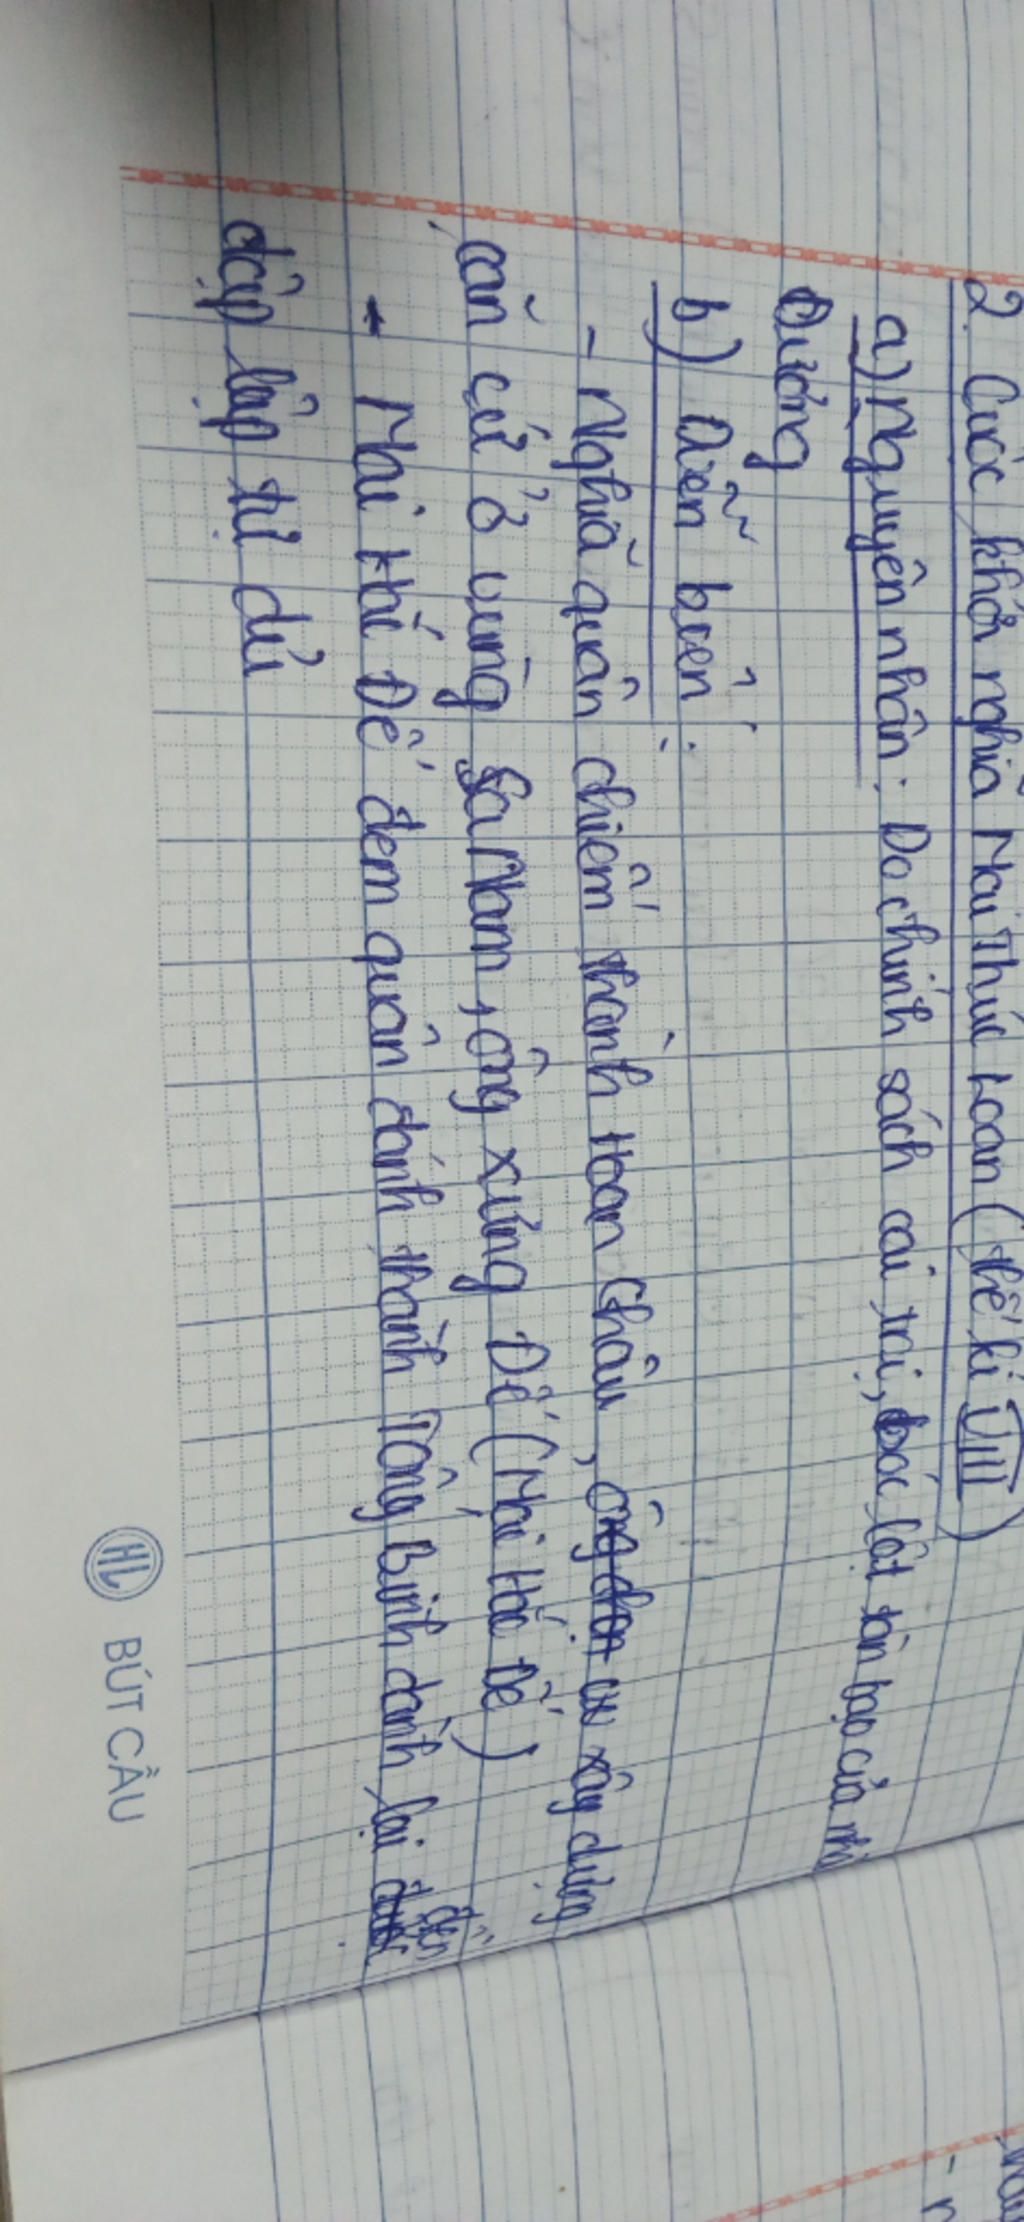 2. Cuộc khởi nghĩa Mai Thúc Loan (thế kỉ VIII)
a) Nguyên nhân: Do chính sách cai trị, bóc lột tàn bạo của nhà
Đường
b) Diễn biến:
- Nghĩa quân chiếm thành Hoan Châu, ông chọn xây dựng
căn cứ ở vùng Sa Nam, ông xưng Đế (Mai Hắc Đế)
- Mai Hắc Đế đem quân đánh thành Tống Bình dành lại được đền
độc lập tự dủ
HL BÚT CẦU